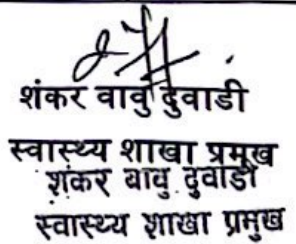 शंकर वावु दुवाडी
स्वास्थ्य शाखा प्रमुख
शंकर वावु दुवाडी
स्वास्थ्य शाखा प्रमुख